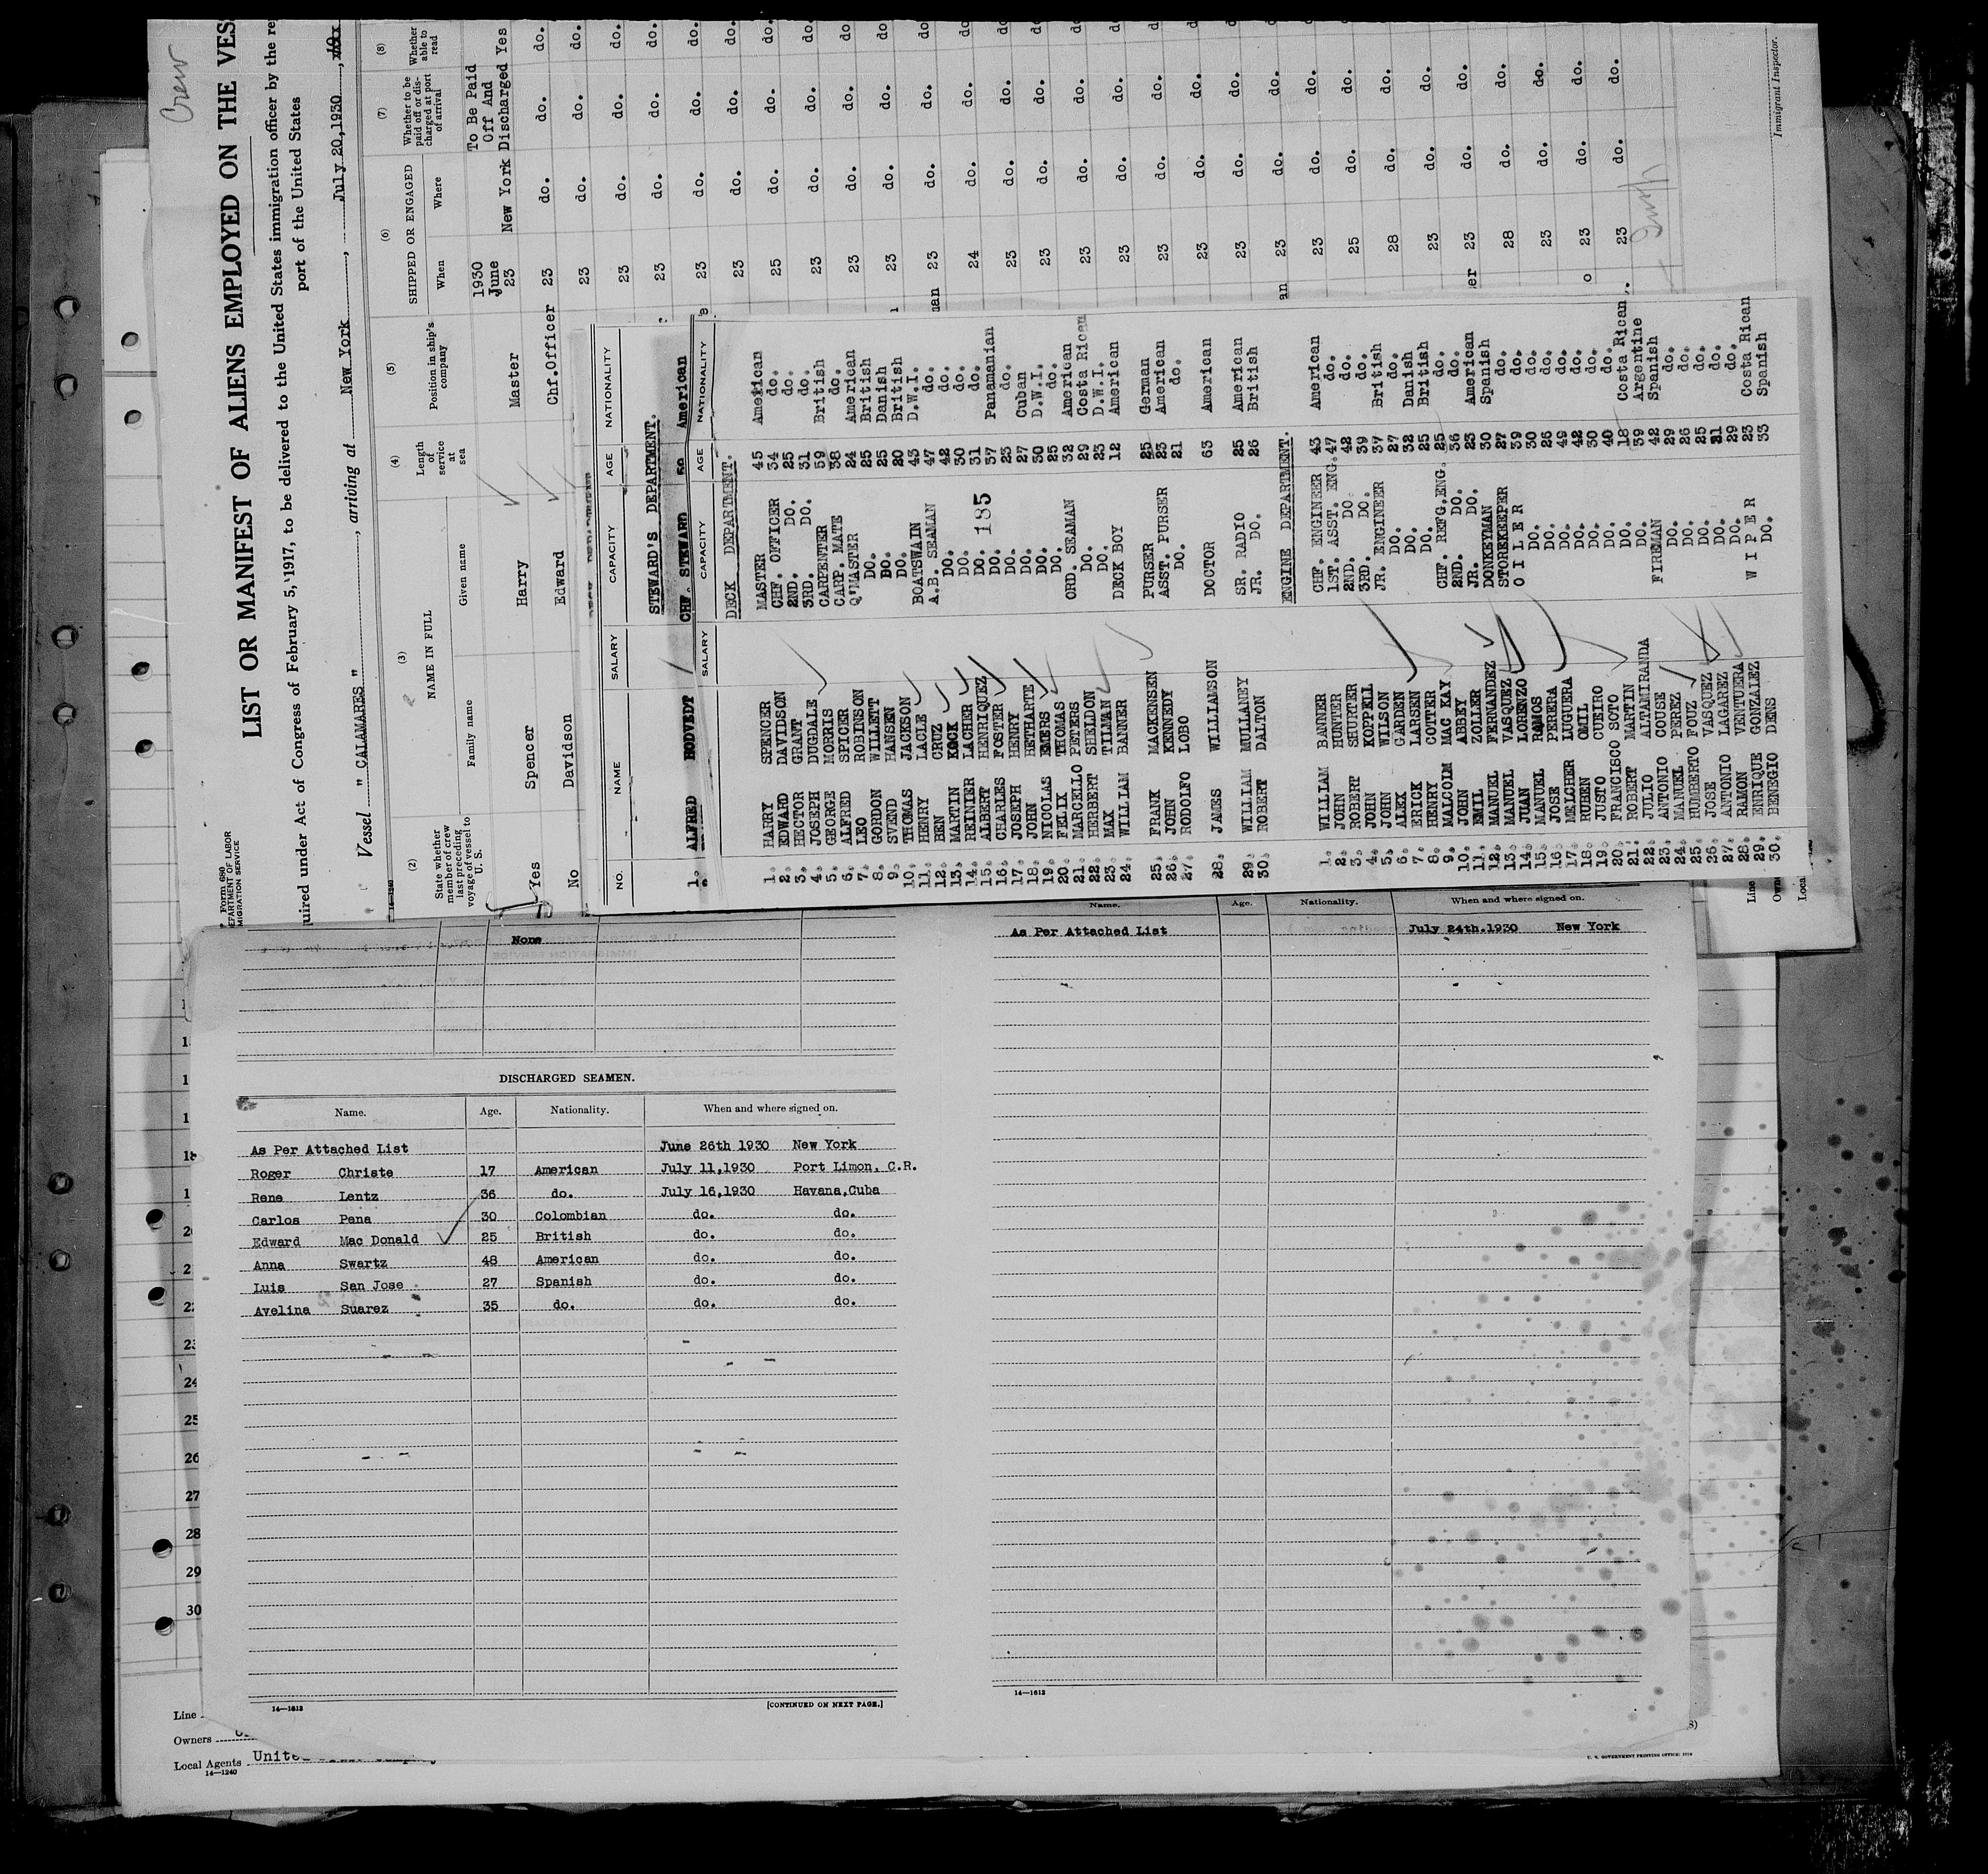 Crew
Form 680
MIGRATION SERVICE
LIST OR MANIFEST OF ALIENS EMPLOYED ON THE VES
uired under Act of Congress of February 5, 1917, to be delivered to the United States immigration officer by the re
port of the United States
Vessel " CALAMARES " , arriving at New York , July 20,1930
(2) (3) (4) (5) (6) (7) (8)
State whether member of crew last preceding voyage of vessel to U. S.
NAME IN FULL
Family name Given name
Length of service at sea
Position in ship's company
SHIPPED OR ENGAGED
When Where
Whether to be paid off or discharged at port of arrival
Whether able to read
1930 To Be Paid
June Off And
Yes Spencer Harry Master 23 New York Discharged Yes
No Davidson Edward Chf.Officer 23 do. do. do.
NO. NAME SALARY CAPACITY AGE NATIONALITY
STEWARD'S DEPARTMENT.
1. ALFRED BODVEDT CHF. STEWARD 50 American
SALARY CAPACITY AGE NATIONALITY
DECK DEPARTMENT.
1. HARRY SPENCER MASTER 45 American
2. EDWARD DAVIDSON CHF. OFFICER 34 do.
3. HECTOR GRANT 2ND. DO. 25 do.
4. JOSEPH DUGDALE 3RD. DO. 31 do.
5. GEORGE MORRIS CARPENTER 59 British
6. ALFRED SPICER CARP. MATE 38 do.
7. LEO ROBINSON Q'MASTER 24 American
8. GORDON WILLETT DO. 25 British
9. SVEND HANSEN DO. 25 Danish
10. THOMAS JACKSON DO. 20 British
11. HENRY LAGLE BOATSWAIN 43 D.W.I.
12. BEN CRUZ A.B. SEAMAN 47 do.
13. MARTIN KOCK DO. 42 do.
14. REINIER LACHER DO. 30 do.
15. ALBERT HENRIQUEZ DO. 31 do.
16. CHARLES FOSTER DO. 37 Panamanian
17. JOSEPH HENRY DO. 23 do.
18. JOHN BETHARTE DO. 27 Cuban
19. NICOLAS EVERS DO. 30 D.W.I.
20. FELIX THOMAS DO. 25 do.
21. MARCELLO PETERS ORD. SEAMAN 32 American
22. HERBERT SHELDON DO. 29 Costa Rican
23. MAX TILMAN DO. 23 D.W.I.
24. WILLIAM BANNER DECK BOY 12 American
185
25. FRANK MACKENSEN PURSER 25 German
26. JOHN KENNEDY ASST. PURSER 23 American
27. RODOLFO LOBO DO. 21 do.
28. JAMES WILLIAMSON DOCTOR 63 American
29. WILLIAM MULLANEY SR. RADIO 25 American
30. ROBERT DALTON JR. DO. 26 British
ENGINE DEPARTMENT.
1. WILLIAM BANNER CHF. ENGINEER 43 American
2. JOHN HUNTER 1ST. ASST. ENG. 47 do.
3. ROBERT SHURTER 2ND. DO. 42 do.
4. JOHN KOPPELL 3RD. DO. 39 do.
5. JOHN WILSON JR. ENGINEER 37 British
6. ALEX GARDEN DO. 27 do.
7. ERICK LARSEN DO. 32 Danish
8. HENRY COTTER DO. 25 British
9. MALCOLM MAC KAY CHF. REFG.ENG. 25 do.
10. JOHN ABBEY 2ND. DO. 36 do.
11. EMIL ZOLLER JR. DO. 23 American
12. MANUEL FERNANDEZ DONKEYMAN 30 Spanish
13. MANUEL VASQUEZ STOREKEEPER 27 do.
14. JUAN LORENZO O I L E R 39 do.
15. MANUEL RAMOS DO. 30 do.
16. JOSE PERRERA DO. 26 do.
17. MELCHER LUGUERA DO. 49 do.
18. RUBEN OMIL DO. 42 do.
19. JUSTO CUEIRO DO. 30 do.
20. FRANCISCO SOTO DO. 40 do.
21. ROBERT MARTIN DO. 18 Costa Rican
22. JULIO ALTAMIRANDA DO. 39 Argentine
23. ANTONIO COUSE FIREMAN 42 Spanish
24. MANUEL PEREZ DO. 29 do.
25. HUMBERTO FOUZ DO. 26 do.
26. JOSE VASQUEZ DO. 25 do.
27. ANTONIO LAGAREZ DO. 21 do.
28. RAMON VENTUERA DO. 29 do.
29. ENRIQUE GONZALEZ W I P E R 23 Costa Rican
30. BENEGIO DENS DO. 33 Spanish
Immigrant Inspector.
None
DISCHARGED SEAMEN.
Name. Age. Nationality. When and where signed on.
As Per Attached List June 26th 1930 New York
Roger Christe 17 American July 11,1930 Port Limon, C.R.
Rene Lentz 36 do. July 16,1930 Havana,Cuba
Carlos Pena 30 Colombian do. do.
Edward Mac Donald 25 British do. do.
Anna Swartz 48 American do. do.
Luis San Jose 27 Spanish do. do.
Avelina Suarez 35 do. do. do.
14—1613 [CONTINUED ON NEXT PAGE.]
Name. Age. Nationality. When and where signed on.
As Per Attached List July 24th.1930 New York
14—1613
23
24
25
26
27
28
29
30
Line
Owners
Local Agents Unite
14—1240
U. S. GOVERNMENT PRINTING OFFICE